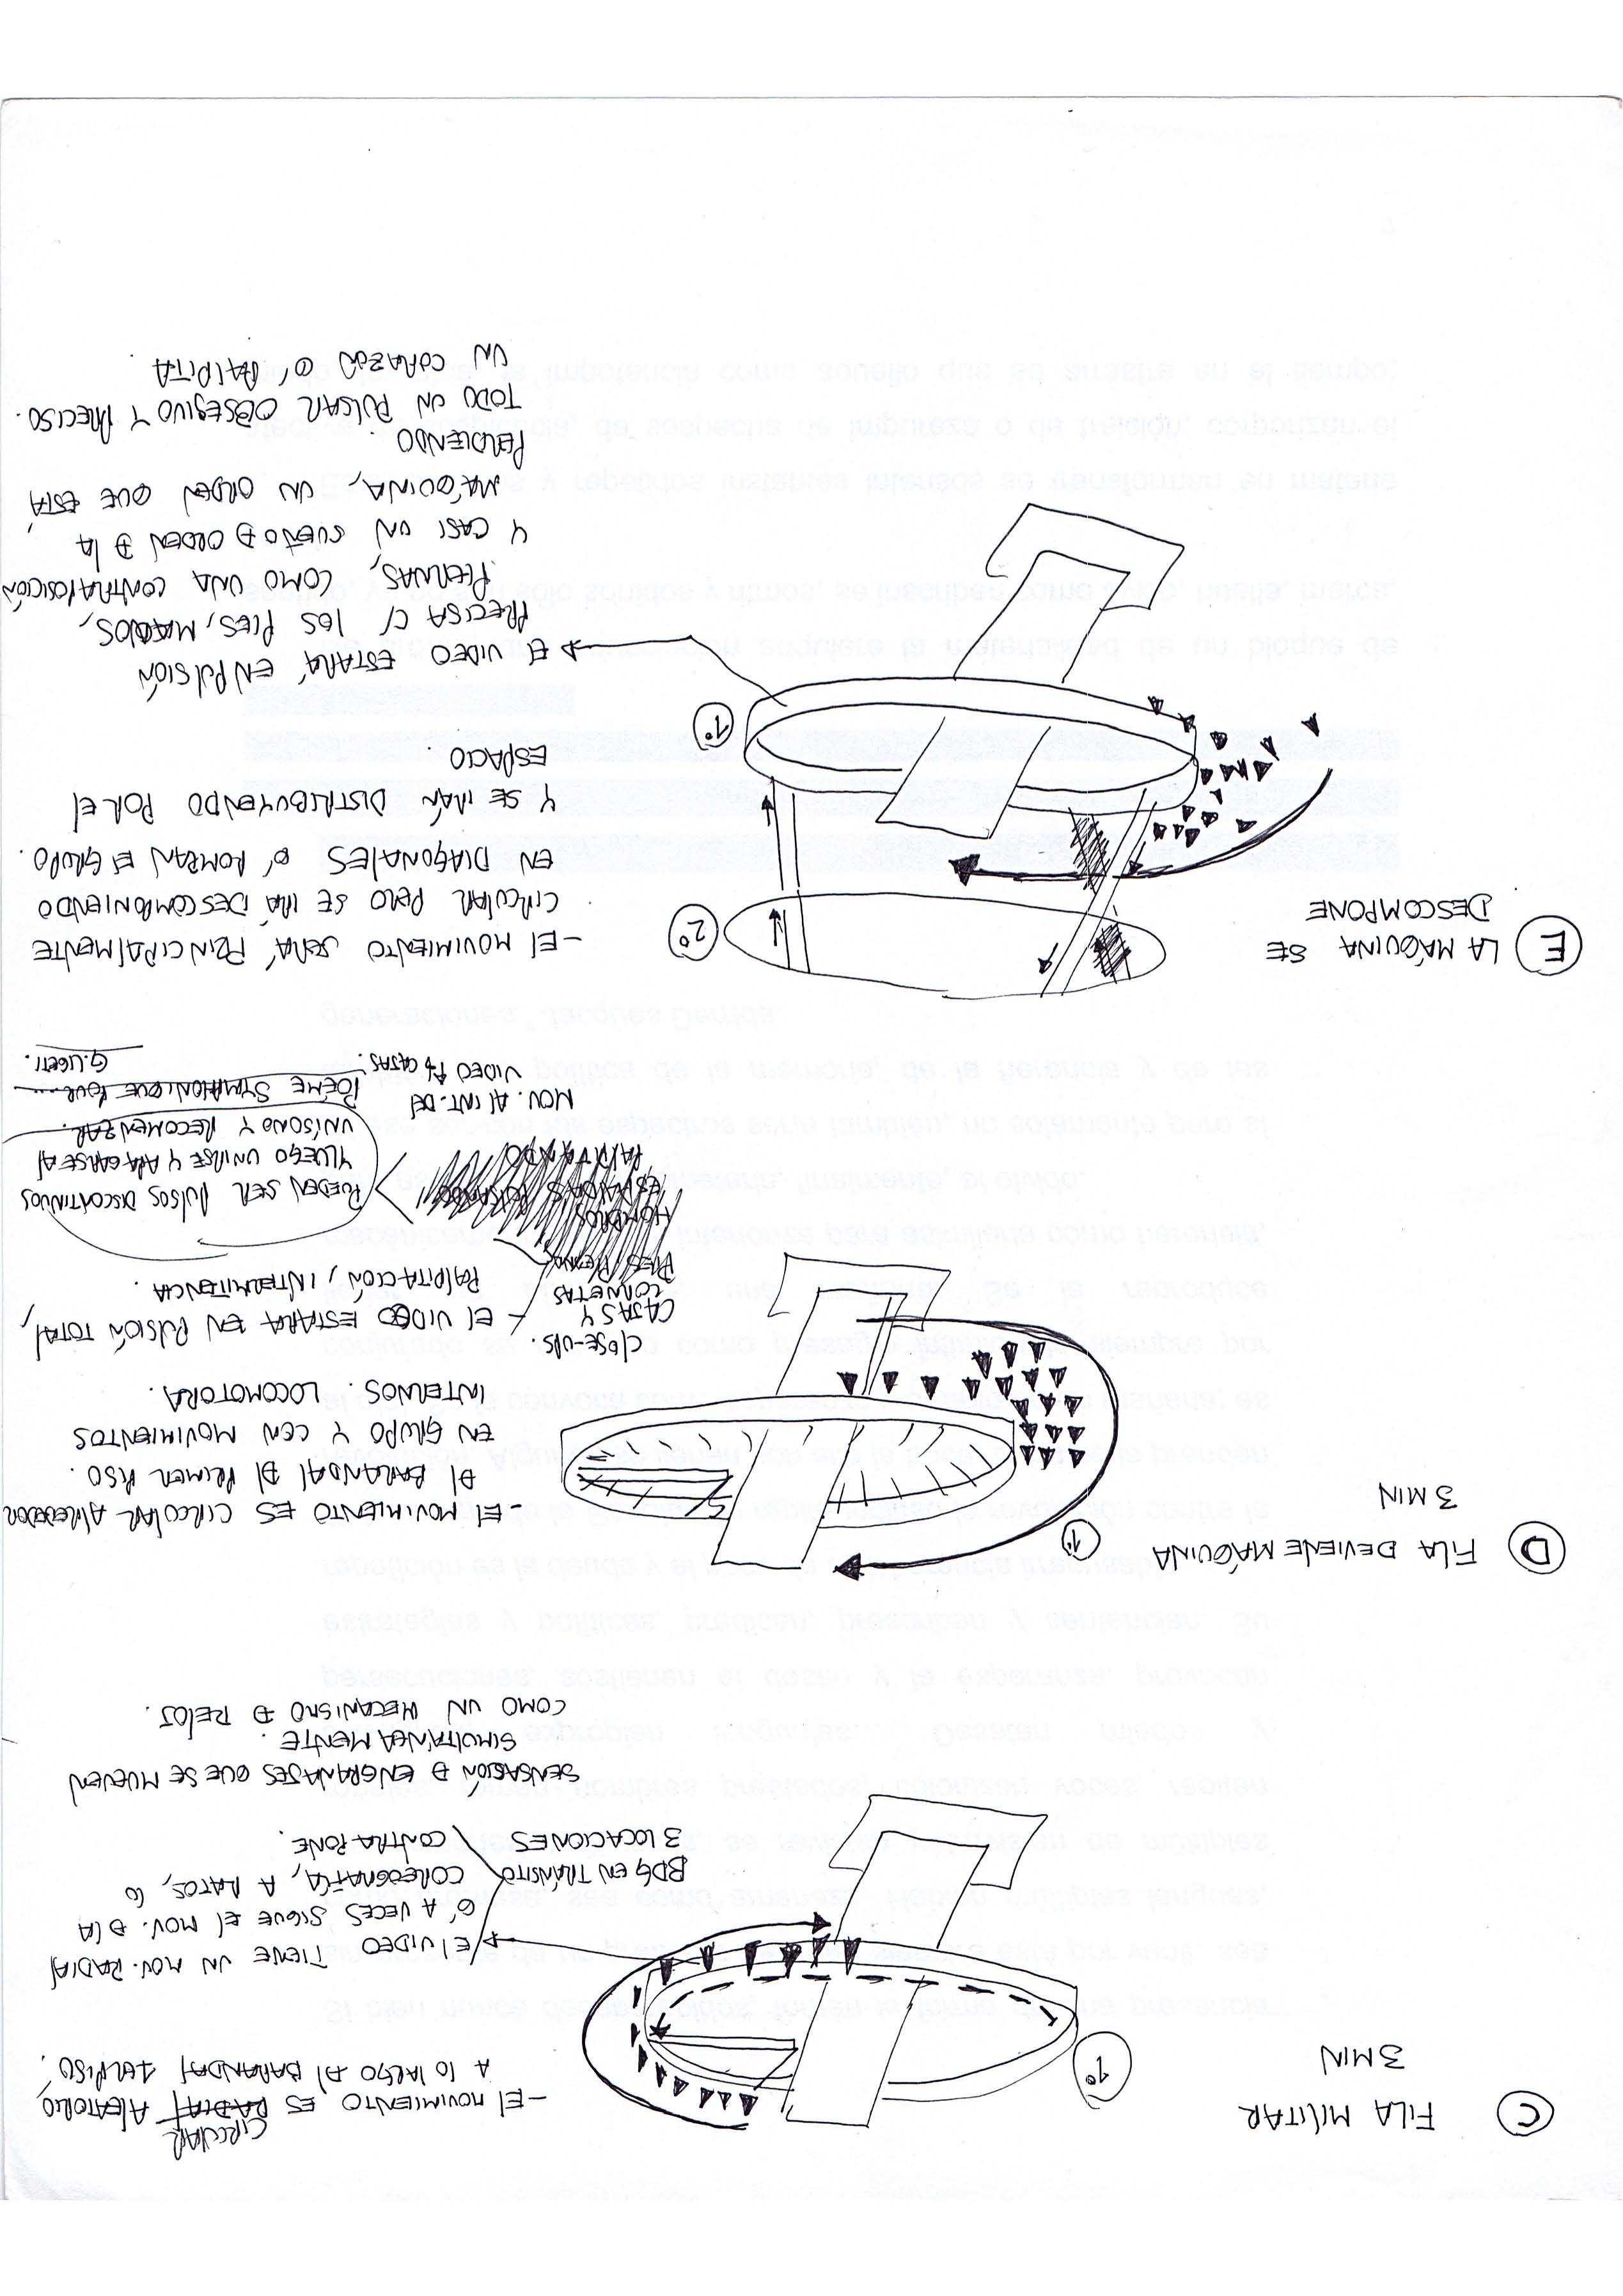 C FILA MILITAR
3 MIN
1º
CIRCULAR
- El MOVIMIENTO ES RADIAL ALEATORIO
A lO lARGO Dl BARANDAl 1ER PISO.
El VIDEO TIENE UN MOV. RADIAl
A VECES SIGUE El MOV. D lA
COREOGRAFÍA, A RATOS, lO
CONTRAPONE.
BDG EN TRÁNSITO
3 LOCACIONES
SENSACION D ENGRANAJES QUE SE MUEVEN
SIMULTÁNEAMENTE.
COMO UN MECANISMO D RELOJ.
D FILA DEVIENE MÁQUINA
3 MIN
1º
- El MOVIMIENTO ES CIRCULAR ALREDEDOR
Dl BARANDAl Dl PRIMER PISO.
EN GRUPO Y CON MOVIMIENTOS
INTERNOS. LOCOMOTORA.
ClOSE-UPS.
CAJAS Y
CORNETAS
PIES PIERNA
HOMBROS
ESPALDAS
PALPITANDO
- El VIDEO ESTARA EN PULSIÓN TOTAl,
PALPITACIÓN, INTERMITENCIA.
PUEDEN SER PULSOS DISCONTINUOS
Y LUEGO UNIRSE Y APAGARSE Al
UNÍSONO Y RECOMENZAR.
POÈME SYMPHONIQUE POUR.....
G. LIGETI.
MOV. Al INT. DEl
VIDEO CAJAS.
E LA MÁQUINA SE
DESCOMPONE
2º
1º
- El MOVIMIENTO SERÁ PRINCIPAlMENTE
CIRCULAR PERO SE IRÁ DESCOMPONIENDO
EN DIAGONALES ROMPAN El GRUPO.
Y SE IRÁN DISTRIBUYENDO POR El
ESPACIO.
El VIDEO ESTARÁ EN PULSIÓN
PRECISA C/ lOS PIES, MANOS,
PIERNAS, COMO UNA CONTRAPOSICIÓN
Y CASI UN SUEÑO D ORDEN D lA
MÁQUINA, UN ORDEN QUE ESTÁ
PERDIENDO.
TODO UN PULSAR OBSESIVO Y PRECISO.
UN CORAZÓN PALPITA.